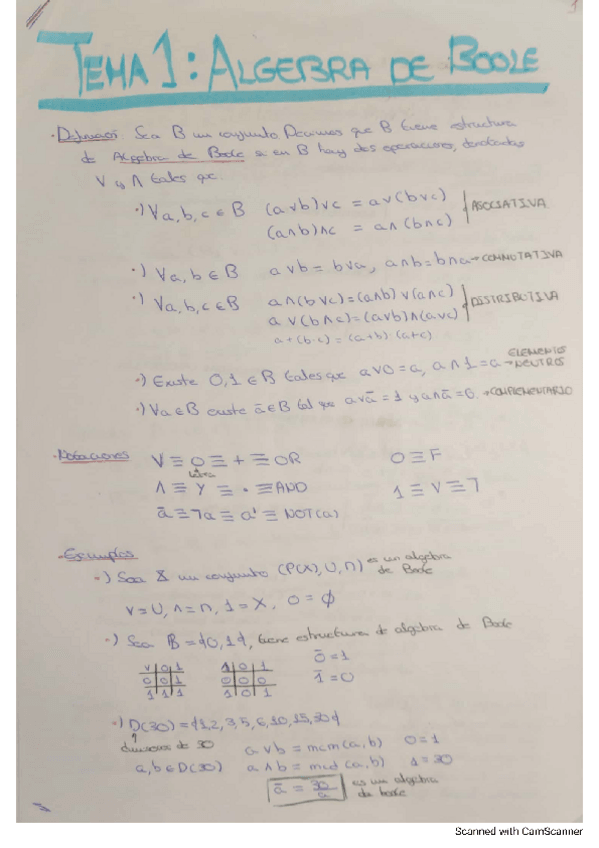 TEMA 1: ALGEBRA DE BOOLE
·Definición: Sea B un conjunto Decimos que B tiene estructura
de Algebra de Boole si en B hay dos operaciones, denotadas
∨ y ∧ tales que.
·) ∀a,b,c ∈ B (a∨b)∨c = a∨(b∨c)
(a∧b)∧c = a∧(b∧c)
ASOCIATIVA
·) ∀a,b ∈ B a∨b = b∨a, a∧b = b∧a → CONMUTATIVA
·) ∀a,b,c ∈ B a∧(b∨c)=(a∧b)∨(a∧c)
a∨(b∧c)=(a∨b)∧(a∨c)
DISTRIBUTIVA
a+(b·c) = (a+b)·(a+c)
·) Existe 0,1 ∈ B tales que a∨0=a, a∧1=a → ELEMENTO NEUTROS
·) ∀a∈B existe ā∈B tal que a∨ā=1 y a∧ā=0. → COMPLEMENTARIO
·Notaciones ∨ ≡ O ≡ + ≡ OR 0 ≡ F
∧ ≡ Y ≡ · ≡ AND 1 ≡ V ≡ T
ā ≡ ¬a ≡ a' ≡ NOT(a)
·Ejemplos
·) Sea X un conjunto (P(X), ∪, ∩) es un algebra de Boole
∨=∪, ∧=∩, 1=X, 0=∅
·) Sea B={0,1}, tiene estructura de algebra de Boole
∨ 0 1 ∧ 0 1 0̄=1
0 0 1 0 0 0 1̄=0
1 1 1 1 0 1
·) D(30)={1,2,3,5,6,10,15,30}
↑
divisores de 30 a∨b = mcm(a,b) 0=1
a,b∈D(30) a∧b = mcd(a,b) 1=30
ā = 30/a es un algebra de boole
Scanned with CamScanner